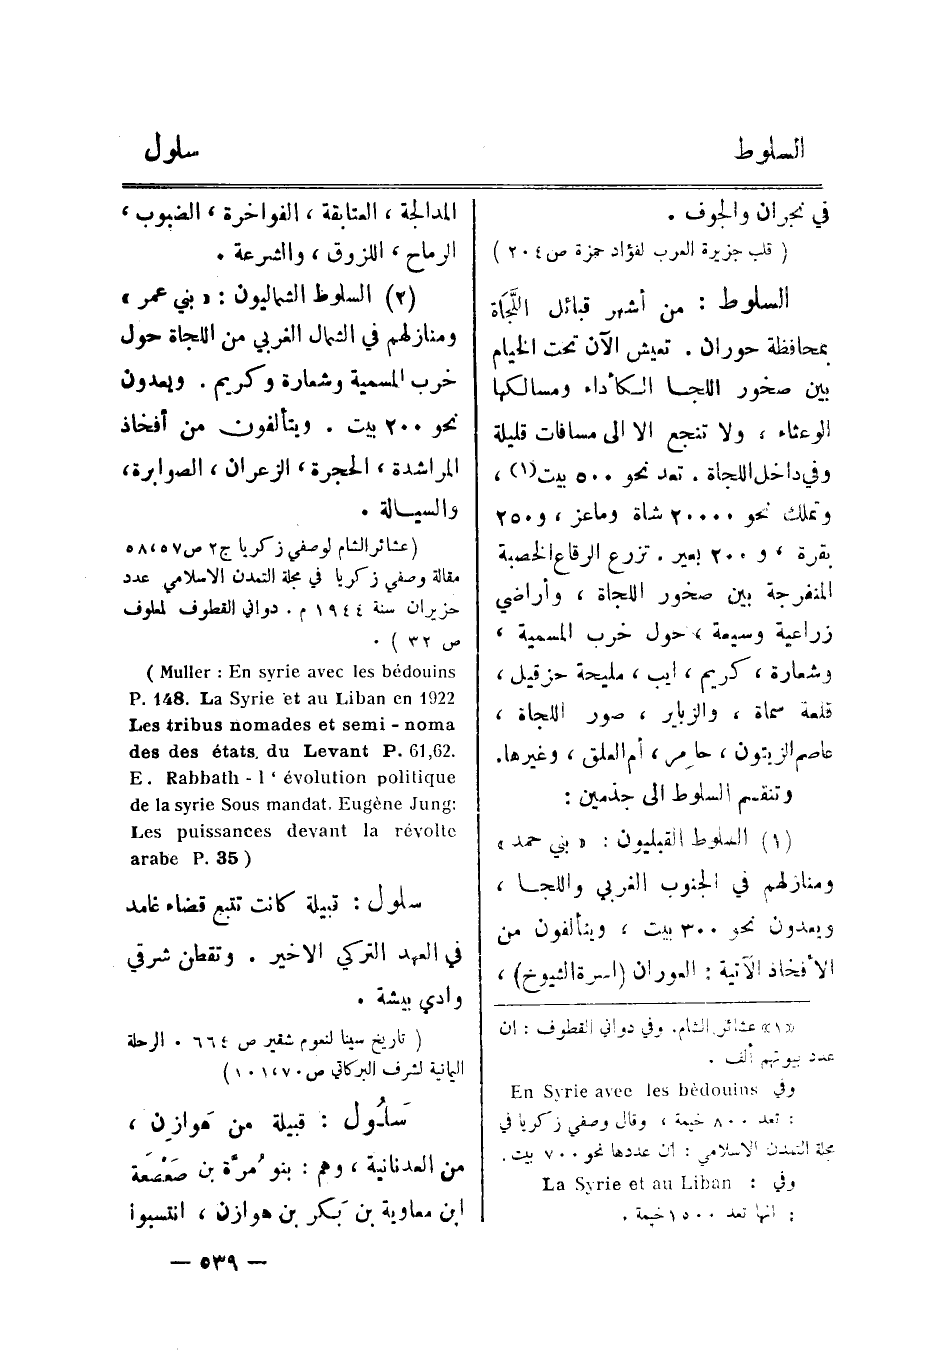 السلوط
سلول
في نجران والجوف .
( قلب جزيرة العرب لفؤاد حمزة ص٢٠٤ )
السلوط : من أشهر قبائل اللَّجَاة
بمحافظة حوران . تعيش الآن تحت الخيام
بين صخور اللجا الكأداء ومسالكها
الوعثاء ، ولا تنجع الا الى مسافات قليلة
وفي داخل اللجاة . تعد نحو ٥٠٠ بيت(١) ،
وتملك نحو ٢٠٠٠٠ شاة وماعز ، و٢٥٠
بقرة ، و ٢٠٠ بعير . تزرع الرقاع الخصبة
المنفرجة بين صخور اللجاة ، وأراضي
زراعية وسيعة ، حول خرب المسمية ،
وشعارة ، كريم ، ايب ، مليحة حزقيل ،
قلعة سماة ، والزباير ، صور اللجاة ،
عاصم الزيتون ، حامر ، أم العلق ، وغيرها.
وتنقسم السلوط الى جذمين :
(١) السلوط القبليون : « بني حمد »
ومنازلهم في الجنوب الغربي واللجا ،
ويعدون نحو ٣٠٠ بيت ، ويتألفون من
الأفخاذ الآتية : العوران (اسرة الشيوخ) ،
«١» عشائر الشام. وفي دواني القطوف : ان
عدد بيوتهم ألف .
وفي En Syrie avec les bèdouins
: تعد ٨٠٠ خيمة ، وقال وصفي زكريا في
مجلة التمدن الاسلامي : ان عددها نحو ٧٠٠ بيت .
وفي : La Syrie et au Liban
: انها تعد ١٥٠٠ خيمة .
المدالجة ، العتابقة ، الفواخرة ، الضبوب ،
الرماح ، اللزوق ، واالشرعة .
(٢) السلوط الشماليون : « بني عمر »
ومنازلهم في الشمال الغربي من اللجاة حول
خرب المسمية وشعارة وكريم . ويعدون
نحو ٢٠٠ بيت . ويتألفون من أفخاذ
المراشدة ، الحجرة ، الزعران ، الصوابرة،
والسيالة .
(عشائر الشام لوصفي زكريا ج٢ ص٥٧،٥٨
مقالة وصفي زكريا في مجلة التمدن الاسلامي عدد
حزيران سنة ١٩٤٤ م . دواني القطوف لمعلوف
ص ٣٢ ) .
( Muller : En syrie avec les bédouins
P. 148. La Syrie et au Liban en 1922
Les tribus nomades et semi - noma
des des états. du Levant P. 61,62.
E. Rabbath - l ‘ évolution politique
de la syrie Sous mandat. Eugène Jung:
Les puissances devant la révolte
arabe P. 35 )
سلول : قبيلة كانت تتبع قضاء غامد
في العهد التركي الاخير . وتقطن شرقي
وادي بيشة .
( تاريخ سينا لنعوم شقير ص ٦٦٤ . الرحلة
اليمانية لشرف البركاتي ص٧٠،١٠١)
سَلُول : قبيلة من هَوازن ،
من العدنانية ، وهم : بنو مُرَّة بن صَعْصَعَة
ابن معاوية بن بَكر بن هوازن ، انتسبوا
— ٥٣٩ —